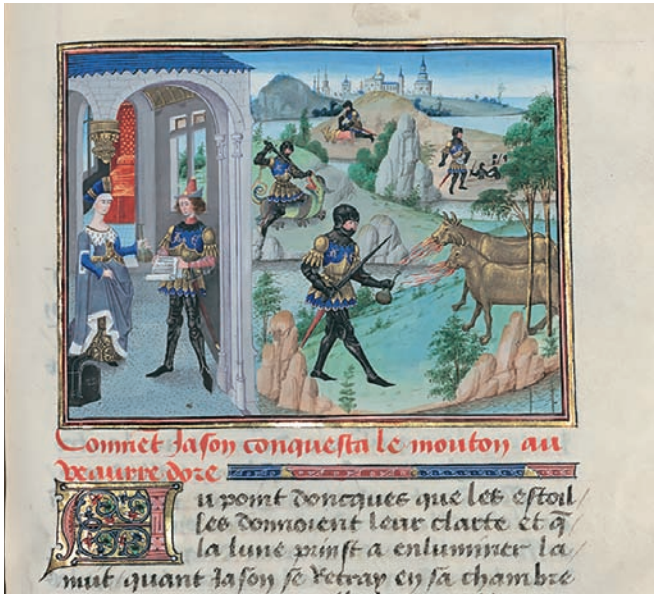 Comment Jason conquesta le mouton au
veaurre dore
Au point doncques que les estoil/
les donnoient leur clarte et q̃
la lune prinst a enluminer la/
nuit quant Jason se retray en sa chambre